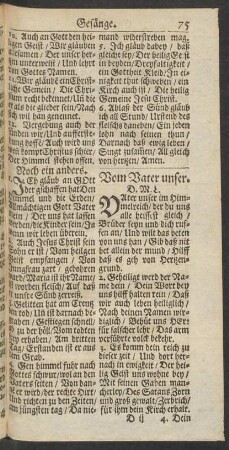 Gesänge. 75
10. Auch an Gott den heiligen
Geist / Wir gläuben
allesamen / Der uns unser
hertzen unterweist / Und lehrt
in Gottes Namen.
11. Wir gläubē ein Christliche
Gemein / Die Christum
recht bekennet / Und da
sie all die glieder sein / Nach
ihm genennet.
12. Vergebung auch der
sünden / Und aufferstehung
hoff / Auch wird uns
Christus schier / Der
Himmel stehen offen.
Noch ein anders.
Ich gläub an GOtt
der geschaffen hat Den
Himmel und die Erden /
Allmächtigen Gott Vater
mein / Der uns hat lassen
werden / die Kinder sein / In
unsern leben.
Auch Jesus Christ sein
Sohn / Vom heilgen
Geist empfangen / Von
Jungfrau zart / gebohren
Maria ist ihr Nam /
/ auf daß er
unser Sünd zerreiß.
Gelitten hat am Creutz
tod / Ist darnach begraben /
Gestiegen schnell
zu der höll / Vom todten
erhaben / am dritten
tag / Erstanden ist er aus
dem Grab.
Gen himmel fuhr nach
Gottes schwur / wol an des
Vaters seiten / Von dannen
er werd her / der
richten zu den Zeiten /
Am jüngsten tag / Da niemand
widerstreben mag.
5. Ich gläub dabey / daß
gleich sey / Der heilig Geist
in beyden / Dreyfaltigkeit /
ein Gottheit Kleid / In einigkeit
ohnscheiden / Die Christen
Kirch auch ist / Die heilig
Gemeine Jesu Christ.
6. Ablaß der Sünd gläub
ich all Stund / Urstend des
fleisches daneben / Ein leben
lohn nach seinem thun /
Darnach daß ewig leben /
Singt zusamen / All gleich
von hertzen / Amen.
Vom Vater unser.
D. M. L.
VAter unser im Himmelreich /
der du uns
alle heissest gleich /
Brüder seyn und dich ruffen
an / Und wilst das beten
von uns han / Gib daß nit
bet allein der mund / Hilff
daß es geh von hertzen
grund.
2. Geheiligt werd der Name
dein / Dein Wort bey
uns hilff halten rein / Daß
wir auch leben heiliglich /
Nach deinen Namen würdiglich /
Behüt uns HErr
für falscher lehr / Das arm
verführte volck bekehr.
3. Es komm dein reich zu
dieser zeit / Und dort hernach
in ewigkeit / Der heilig
Geist uns wohne bey /
Mit seinen Gaben mancherley /
Des Satans Zorn
und groß gewalt / Zerbrich /
für ihm dein Kirch erhalt.
D ij 4. Dein